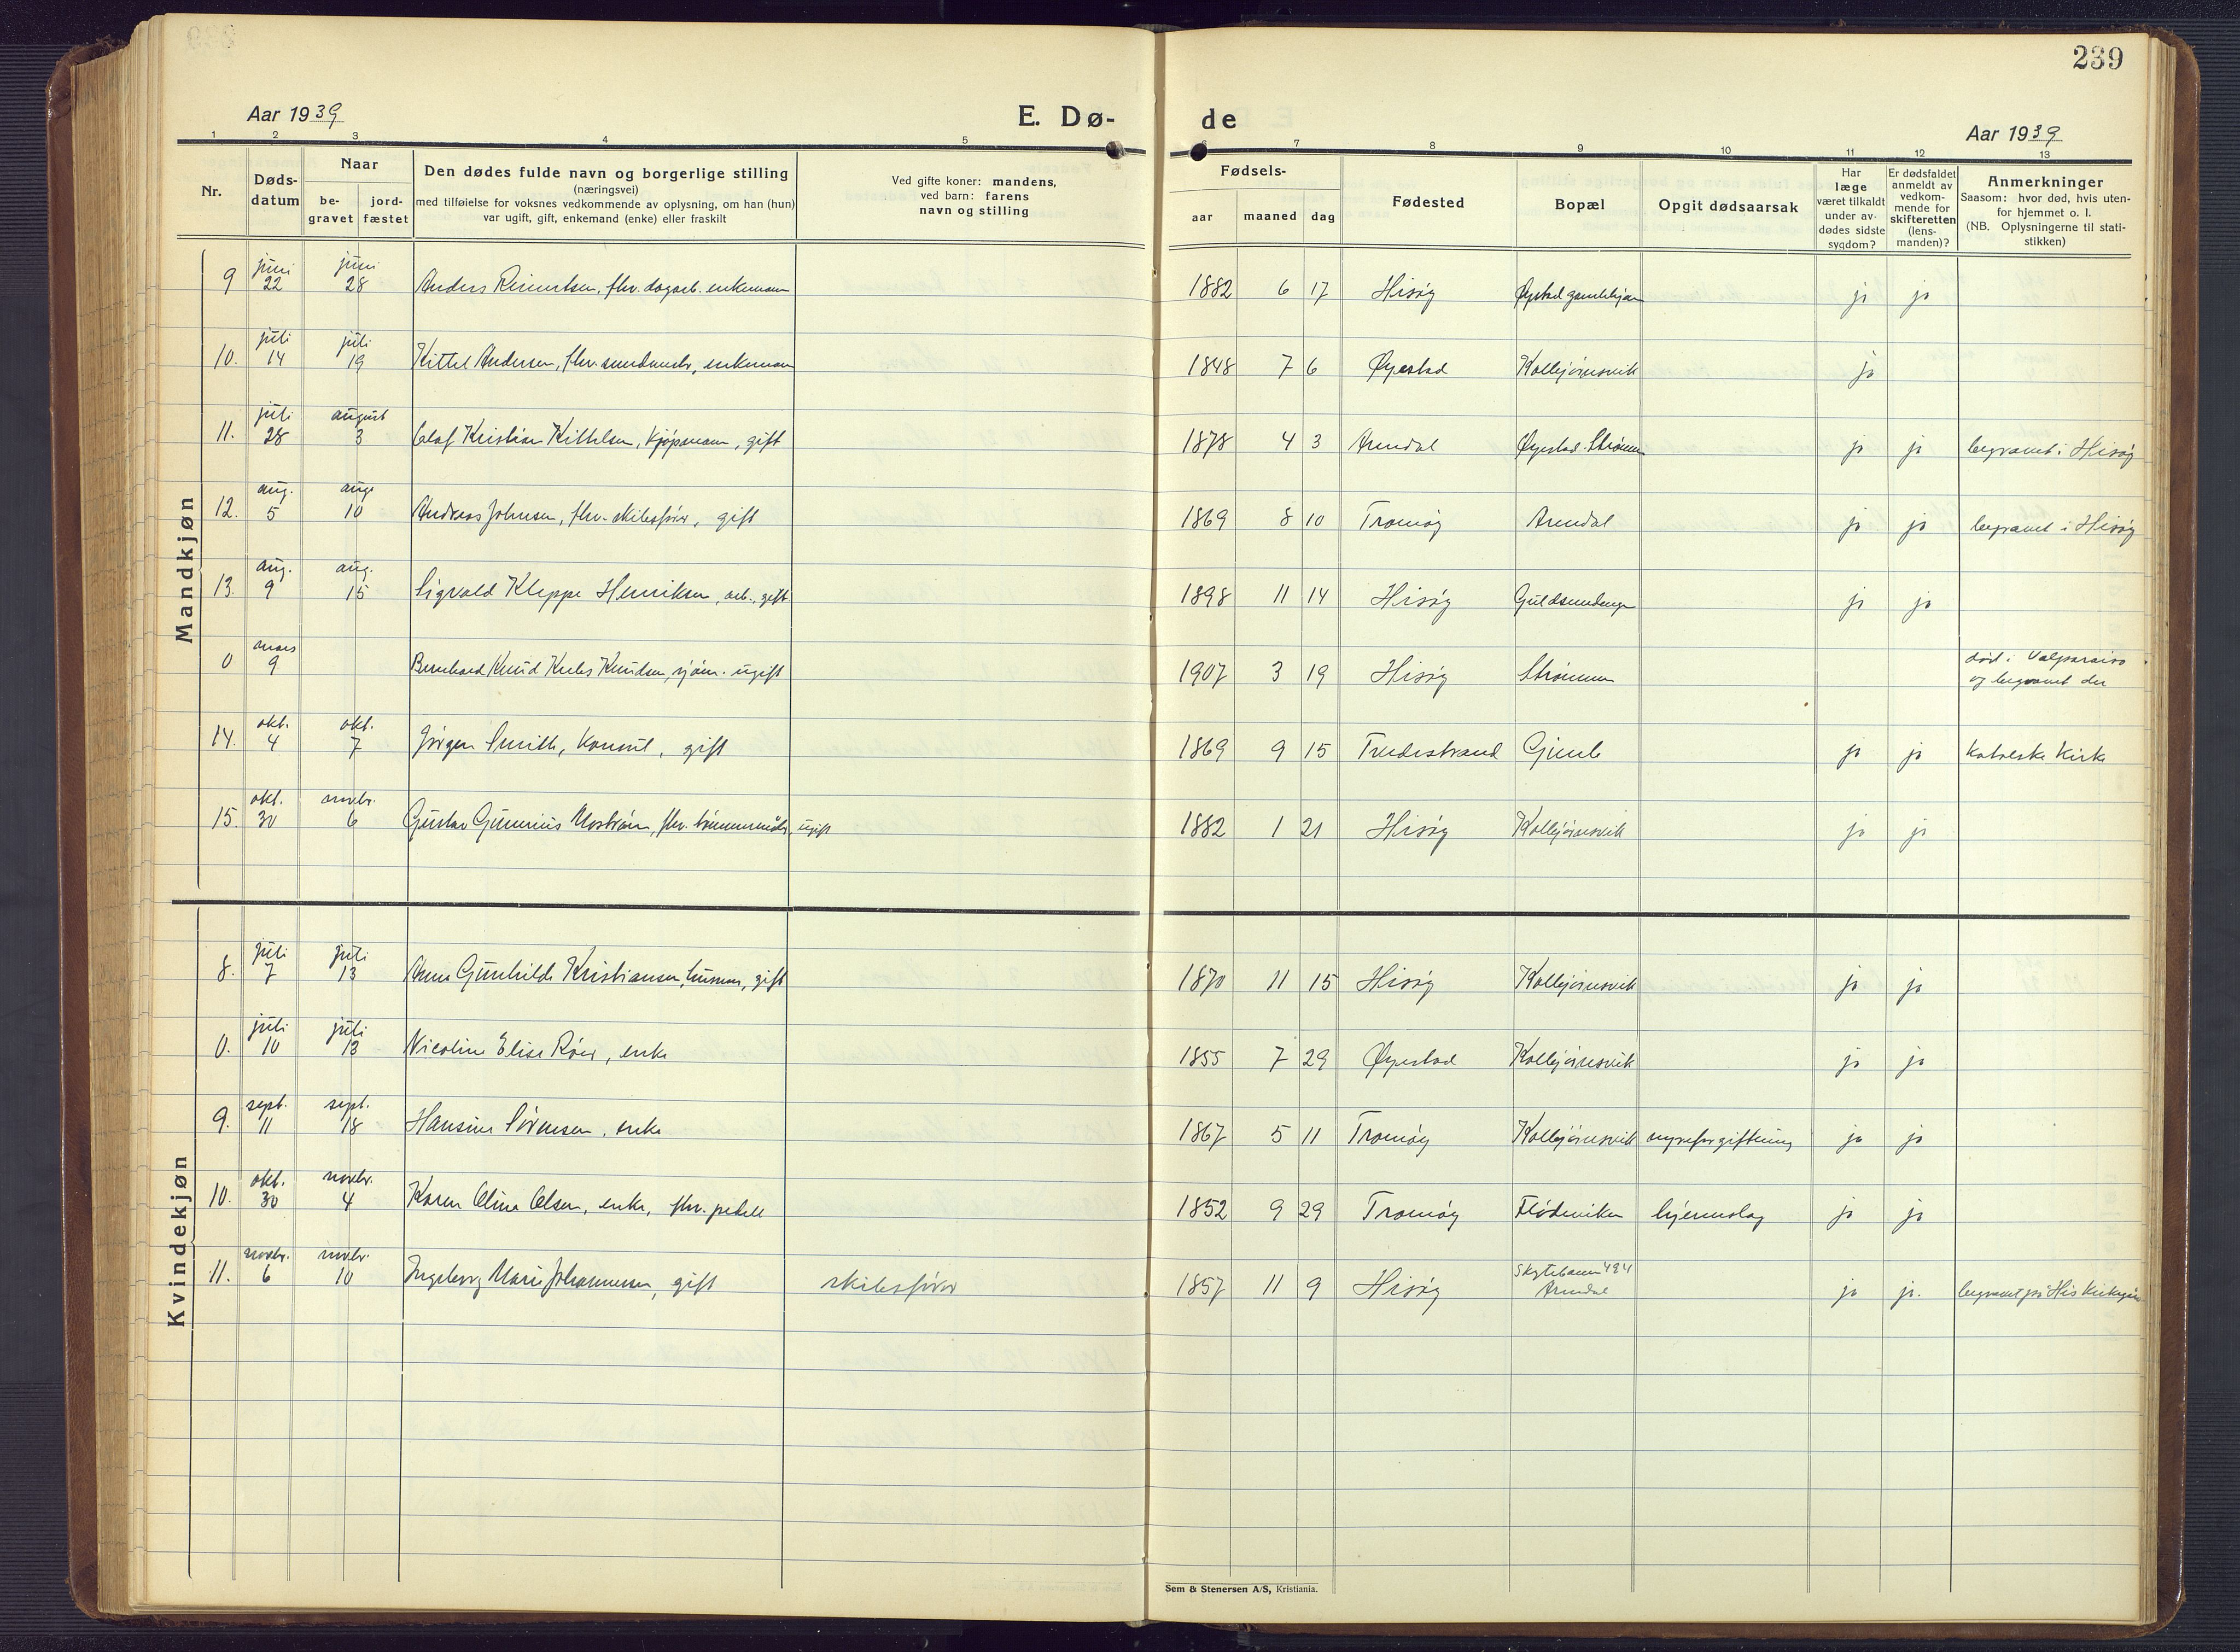 239
Aar 1939
E. Dø-
de
Aar 1939
1 2 3 4 5 6 7 8 9 10 11 12 13
Nr.
Døds-
datum
Naar
be-
gravet
jord-
fæstet
Den dødes fulde navn og borgerlige stilling
(næringsvei)
med tilføielse for voksnes vedkommende av oplysning, om han (hun)
var ugift, gift, enkemand (enke) eller fraskilt
Ved gifte koner: mandens,
ved barn: farens
navn og stilling
Fødsels-
aar
maaned
dag
Fødested
Bopæl
Opgit dødsaarsak
Har
læge
været tilkaldt
under av-
dødes sidste
sygdom?
Er dødsfaldet
anmeldt av
vedkom-
mende for
skifteretten
(lens-
manden)?
Anmerkninger
Saasom: hvor død, hvis uten-
for hjemmet o. l.
(NB. Oplysningerne til stati-
stikken)
Mandkjøn
juni juni
9 22 28 Anders Reiertsen, fhv. dagarb. enkemann 1882 6 17 Hisøy Øyestad gamlehjem ja ja
juli juli
10. 14 19 Kittel Andersen, fhv. enkemann 1848 7 6 Øyestad Kolbjørnsvik ja
juli august
11. 28 3 Olaf Kristian Kittelsen, kjøpmann, gift 1878 4 3 Arendal Øyestad. Strømmen ja ja begravet i Hisøy
aug. aug.
12. 5 10 Andreas Johnsen, fhv. skibsfører, gift 1869 8 10 Tromøy Arendal ja ja begravet i Hisøy
aug. aug.
13. 9 15 Sigvald Kleppe Henriksen, arb., gift 1898 11 14 Hisøy Guldsmedengen ja ja
mars
0 9 Bernhard Knud Krebs Knudsen, sjøm. ugift 1907 3 19 Hisøy Strømmen død i Valparaiso
og begravet der
okt. okt.
14. 4 7 Jørgen Smith, konsul, gift 1869 9 15 Tvedestrand Gimle ja ja katolske kirke
okt. novbr.
15. 30 6 Gustav Gunerius Mostrøm, fhv. tømmermann, ugift 1882 1 21 Hisøy Kolbjørnsvik ja ja
Kvindekjøn
juli juli
8. 7 13 Anna Gunhilde Kristiansen, husmor, gift 1870 11 15 Hisøy Kolbjørnsvik ja ja
juli juli
0. 10 13 Nicoline Elise Røer, enke 1855 7 29 Øyestad Kolbjørnsvik ja ja
sept. sept.
9. 11 18 Hansine Sørensen, enke 1867 5 11 Tromøy Kolbjørnsvik nyreforgiftning ja ja
okt. novbr.
10. 30 4 Karen Olina Olsen, enke, fhv. pedell 1852 9 29 Tromøy Flødeviken hjerneslag ja ja
novbr. novbr.
11. 6 10 Ingeborg Marie Johannessen, gift skibsfører 1857 11 9 Hisøy Skytebanen 494
Arendal ja ja. begravet på His kirkegård
Sem & Stenersen A/S, Kristiania.